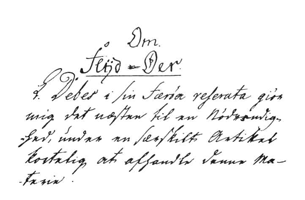 Om
Flyd-Øer
L. Debes i sin Færöa referata giör
mig det næsten til en Nödvendig-
hed, under en særskilt Artikel
kortelig at afhandle denne Ma-
terie.